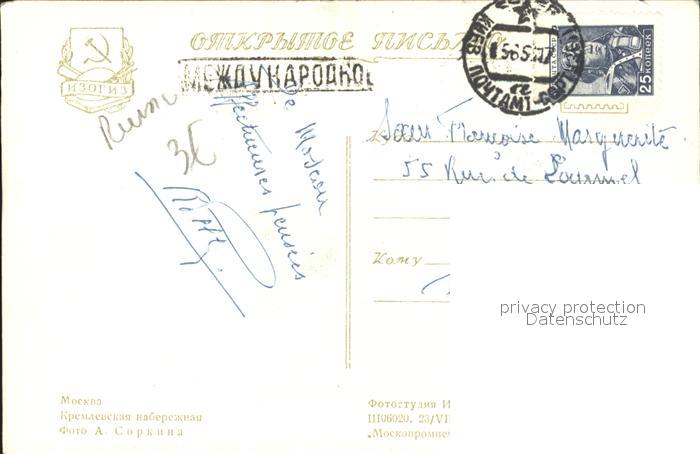 ИЗОГИЗ
ОТКРЫТОЕ ПИСЬМО
МЕЖДУНАРОДНОЕ
25 КОПЕЕК
ПОЧТАМТ
De Moscou
affectueuses pensées
3E
Françoise Marguerite
55 Rue de Lourmel
Кому
privacy protection
Datenschutz
Москва
Кремлевская набережная
Фото А. Соркина
Фотостудия И
Ш06020. 23/VII
„Москопромпе